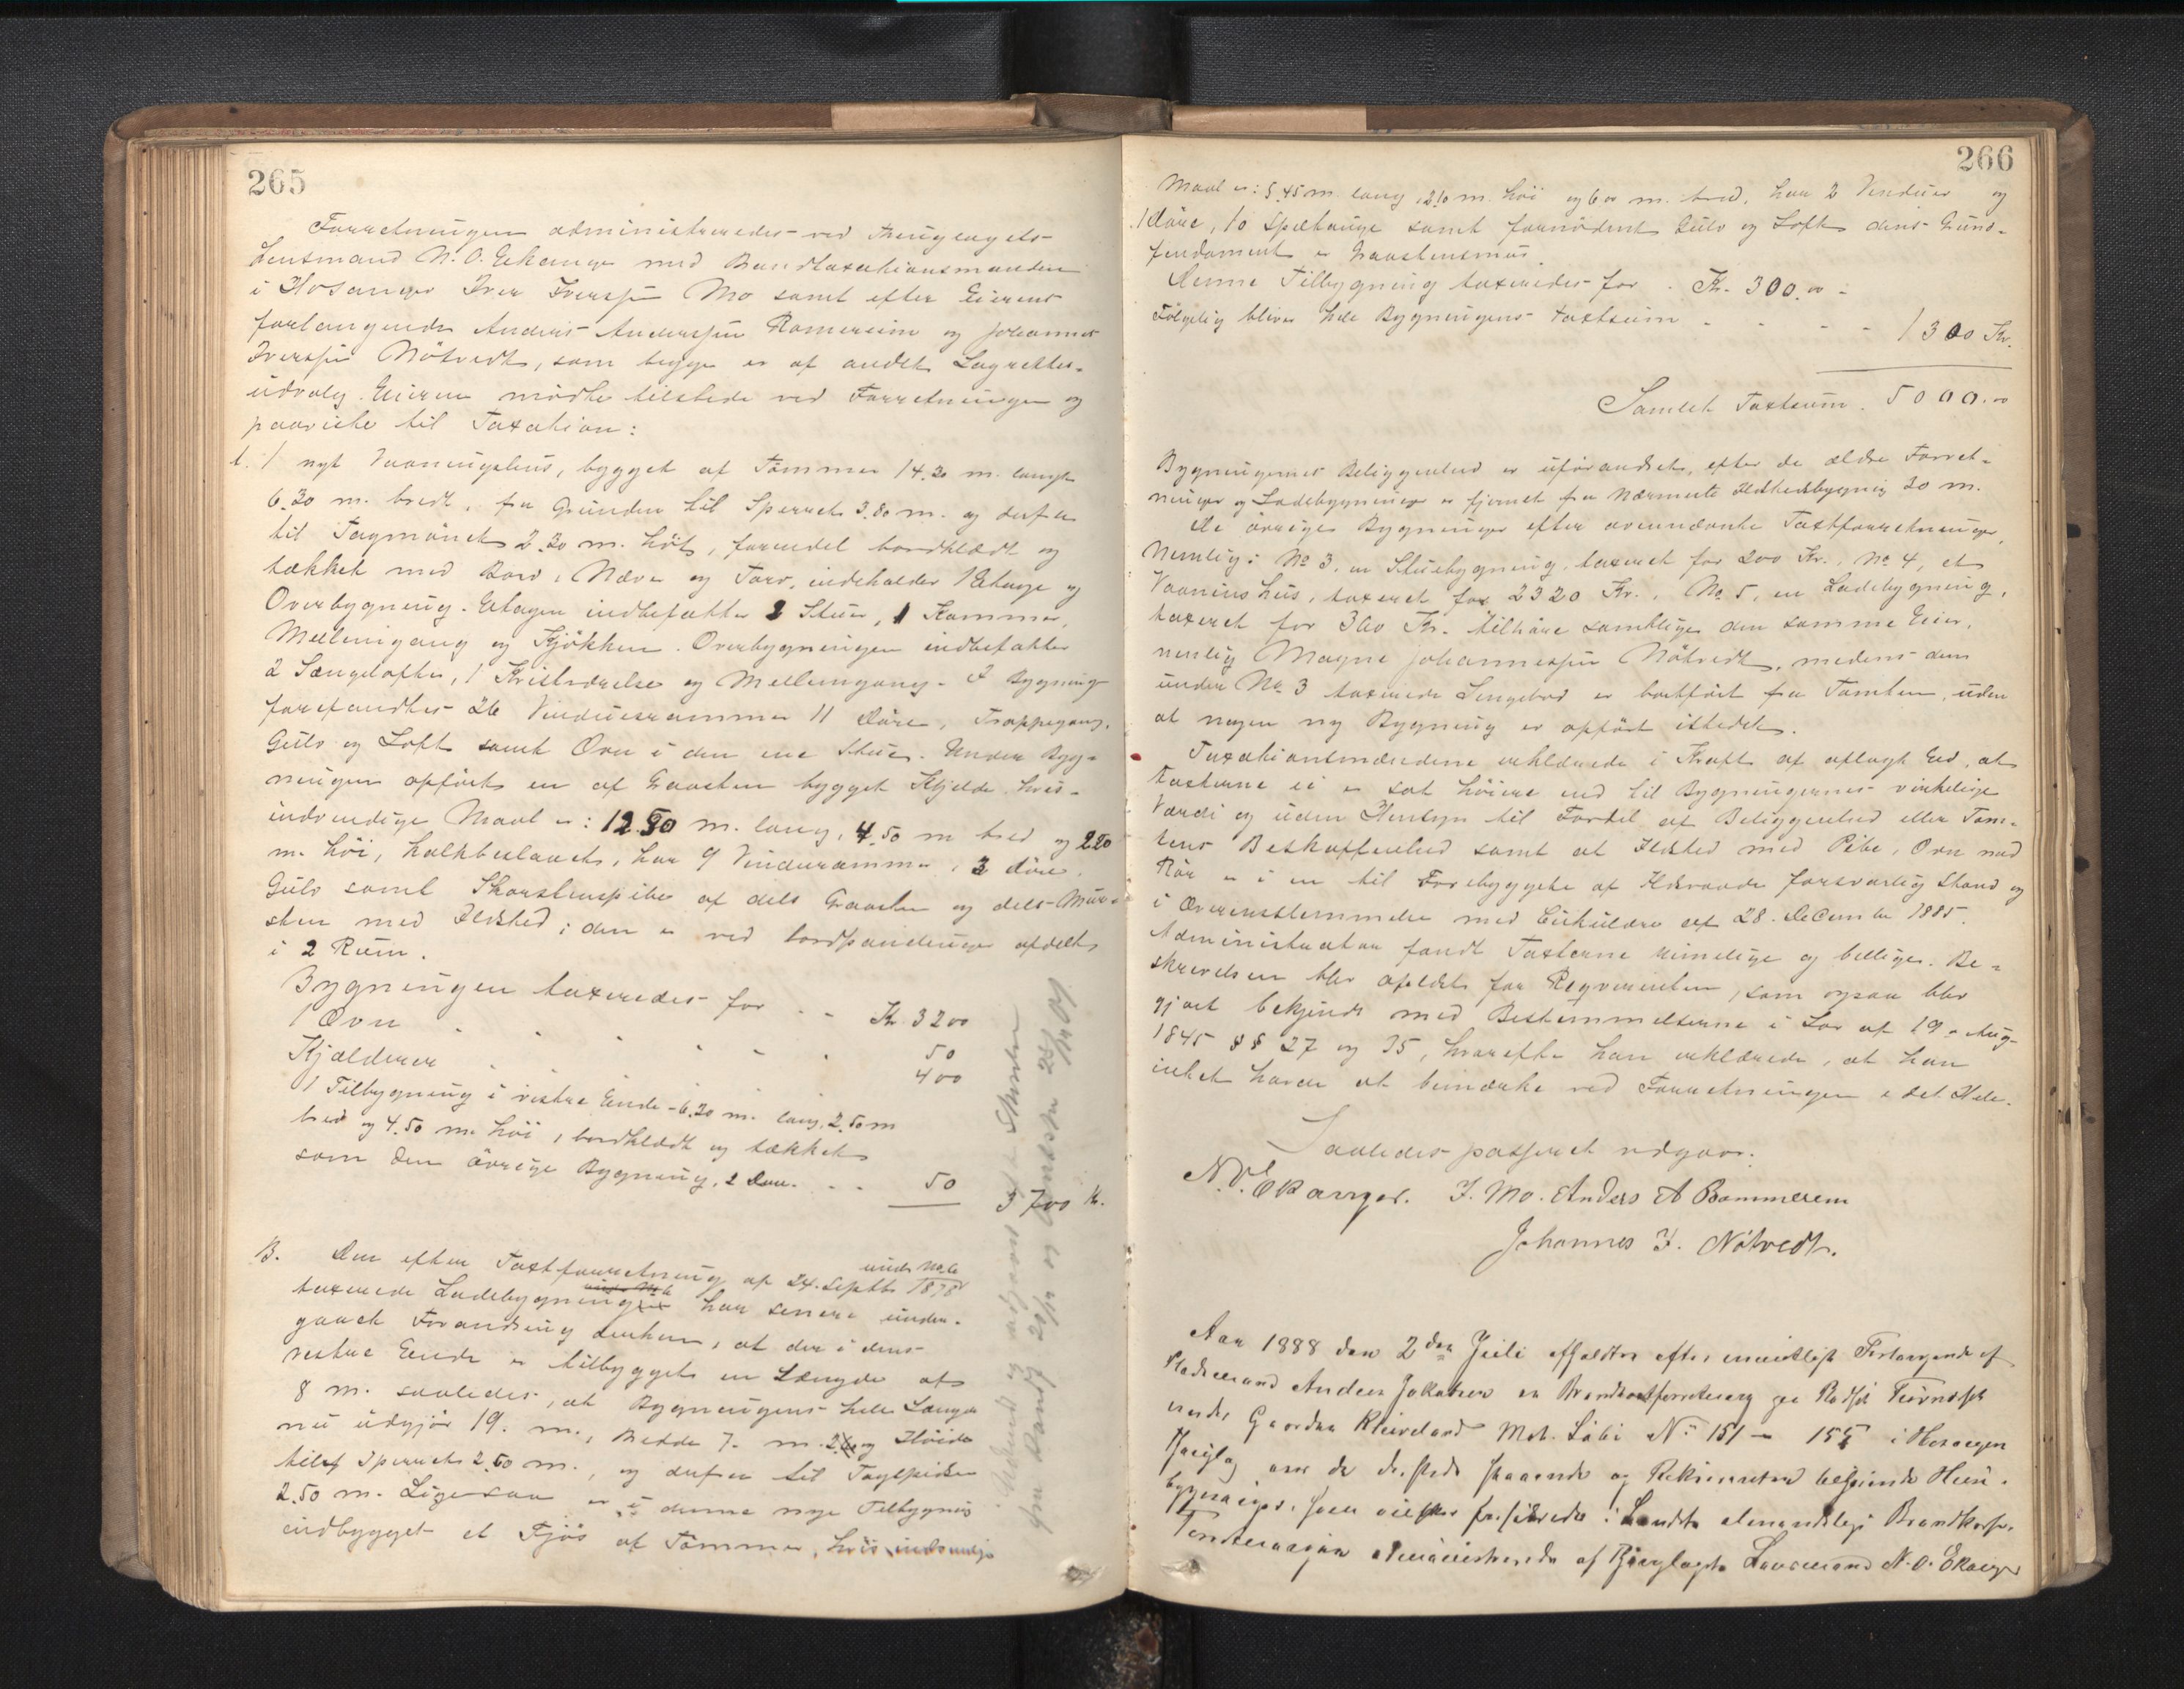 265
Forretningen administreredes ved Thinglagets
Lensmand N. O. Eknger med Brandtaxationsmanden
i Hosanger Iver Iversen Mo samt efter Eierens
forlangende Anders Andersen Romereim og Johannes
Iversen Nötvedt, som begge er af andet Lagrettes-
udvalg. Eieren mödte tilstede ved Forretningen og
paaviste til Taxation:
1 nyt Vaaningshus, bygget af Tömmer 14.30 m. langt
6.30 m. bredt, fra Grunden til Sperret 3.80 m. og derfra
til Tagmönet 2.30 m. höit, forendel bordklædt og
tækket med Bord, Næver og Torv, indeholder 1 Etage og
Overbygning. Etagen indbefatter 2 Stuer, 1 Kammer,
Mellemgang og Kjökken. Overbygningen indbefatter
2 Sængelofter, 1 Kvistværelse og Mellemgang. I Bygning
forefandtes 26 Vinduesrammer 11 Döre, Trappegang,
Gulv og Loft samt Ovn i den ene Stue. Under Byg-
ningen opfört en af Graasten bygget Kjelder hvis
indvendige Maal er: 12.50 m. lang, 4.50 m bred og 2.20
m. höi, kalkbeslaaet, har 9 Vinduesrammer, 3 döre,
Gulv samt Skorstenspibe af dels Graasten og dels Mur-
sten med Ildsted; den er ved bordpanelinger afdelt
i 2 Rum.
Bygningen taxeredes for . . Kr. 3200
1 Ovn . . . . . 50
Kjælderen . . . . . 400
1 Tilbygning i vestre Ende - 6.30 m. lang, 2.50 m
bred og 4.50 m. höi, bordklædt og tækket
som den övrige Bygning, 2 Döre . . 50
3700 Kr.
B. Den efter Taxtforretning af 24. Septbr 1878 under No 6
taxerede Ladebygning har senere under-
gaaet Forandring derhen, at der i dens
vestre Ende er tilbygget en Længde af
8 m. saaledes, at Bygningens hele Længde
nu udgjör 19. m., Bredde 7. m. og Höide
til Sperret 2.50 m., og derfra til Tagspidsen
2.50 m. Ligesaa er i denne nye Tilbygning
indbygget et Fjös af Tömmer, hvis indvendige
266
Maal er: 5.45 m. lang, 2.10 m. höi og 6.00 m. bred, har 2 Vinduer og
1 Döre, 10 Spiltauge samt fornödent Gulv og Loft dens Grund-
fundament er Graastensmur.
Denne Tilbygning taxeredes for . Kr. 300.00
Fölgelig bliver hele Bygningens taxtsum - - - - 1300 Kr.
Samlet Taxtsum. 5000.00
Bygningernes Beliggenhed er uforandret, efter de ældre Forret-
ninger og Ladebygningen er fjernet fra nærmeste Ildstedsbygning 30 m.
De övrige Bygninger efter ovennævnte Taxtforretninger,
Nemlig: No 3, en Stuebygning, taxeret for 200 Kr., No 4, et
Vaanings hus, taxeret for 2320 Kr., No 5, en Ladebygning,
taxeret for 300 Kr. tilhöre samtlige den samme Eier,
nemlig Magne Johannesen Nötvedt, medens den
under No 3 taxerede Sengebod er bortfört fra Tomten, uden
at nogen ny Bygning er opfört istedet.
Taxationsmændene erklærede i Kraft af aflagt Ed, at
Taxterne ei er sat höiere end til Bygningernes virkelige
Værdi og uden Hensyn til Fordel af Beliggenhed eller Tom-
tens Beskaffenhed samt at Ildsted med Pibe, Ovn med
Rör er i en til Forebyggelse af Ildsvaade forsvarlig Stand og
i Overensstemmelse med Cirkulære af 28. December 1885.
Administrator fandt Taxterne rimelige og billige. Be-
skrivelsen blev oplæst for Reqvirenten, som ogsaa blev
gjort bekjendt med Bestemmelserne i Lov af 19. Aug.
1845 §§ 27 og 35, hvorefter han erklærede, at han
intet havde at bemærke ved Forretningen i det Hele.
Saaledes passeret udgaar:
N. O. Ekanger. I. Mo. Anders A Rommerem
Johannes I. Nötvedt.
Aar 1888 den 2den Juli afholdtes efter mundtligt Forlangende af
Pladsmand Anders Jakobsen en Brandtaxtforretning paa Pladsen
under Gaarden Kleiveland Mat. Löbe No 151 - i Hosanger
Thinglag over de dersteds staaende og Rekvirenten tilhörende Huus-
bygninger, som forsikrede i Landets almindelige Brandkasse.
Forretningen administreredes af Thinglagets Lensmand N. O. Ekanger